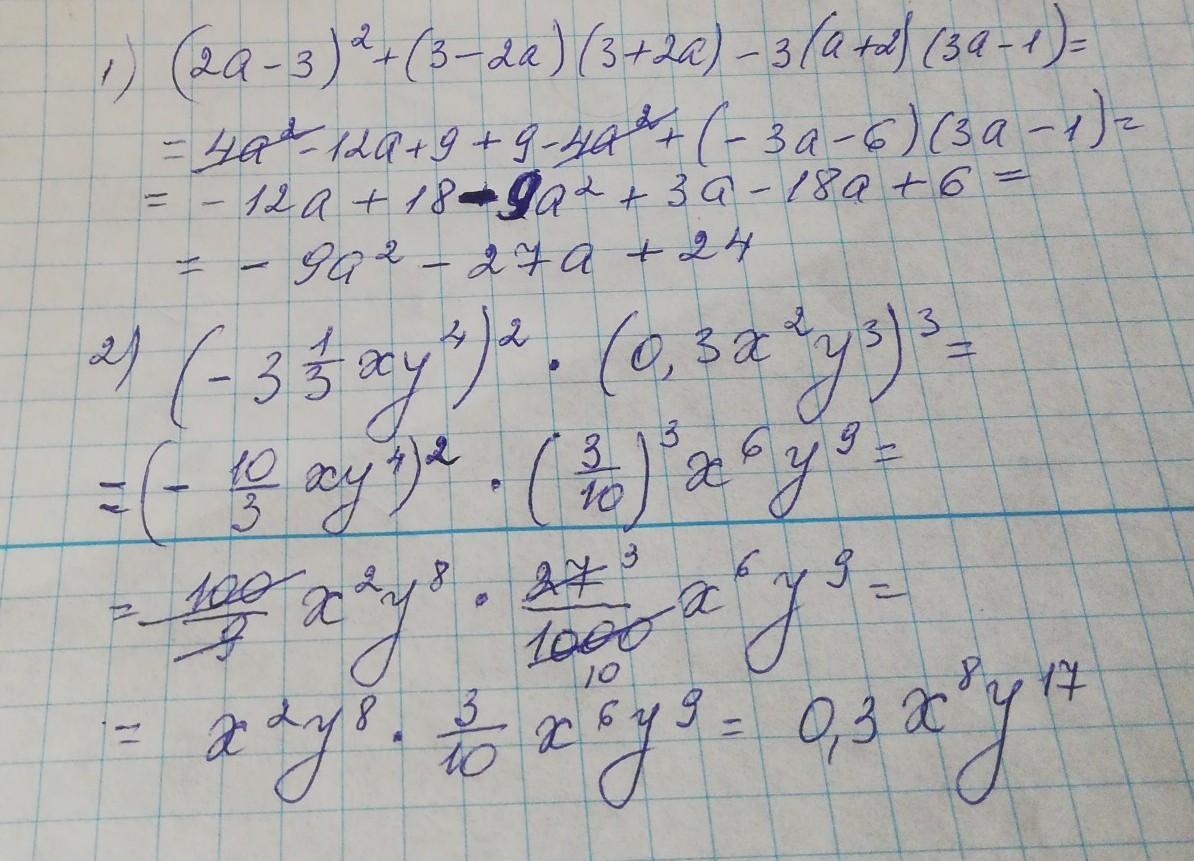 1) (2a-3)² + (3-2a)(3+2a) - 3(a+2)(3a-1) =
= 4a² - 12a + 9 + 9 - 4a² + (-3a-6)(3a-1) =
= -12a + 18 - 9a² + 3a - 18a + 6 =
= -9a² - 27a + 24
2) (-3 1/3 xy⁴)² · (0,3x²y³)³ =
= (- 10/3 xy⁴)² · (3/10)³ x⁶y⁹ =
= 100/9 x²y⁸ · 27 3/1000 10 x⁶y⁹ =
= x²y⁸ · 3/10 x⁶y⁹ = 0,3x⁸y¹⁷